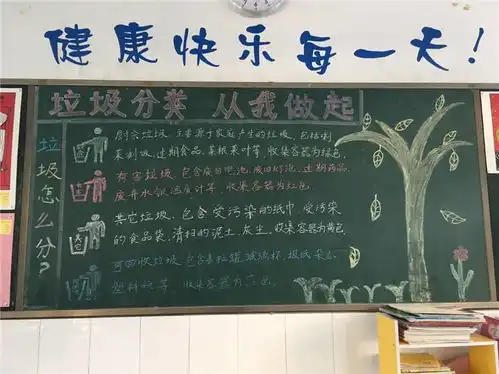 健康快乐每一天！
垃圾分类 从我做起
垃圾怎么分？
厨余垃圾 主要源于家庭产生的垃圾，包括剩
菜剩饭、过期食品、菜根菜叶等，收集容器为绿色。
有害垃圾，包含废旧电池、废旧灯泡、过期药品、
废弃水银温度计等，收集容器为红色
其它垃圾，包含受污染的纸巾、受污染
的食品袋、清扫的泥土、灰尘，收集容器为黄色
可回收垃圾，包含易拉罐、玻璃杯、报纸
塑料 等，收集容器为蓝色